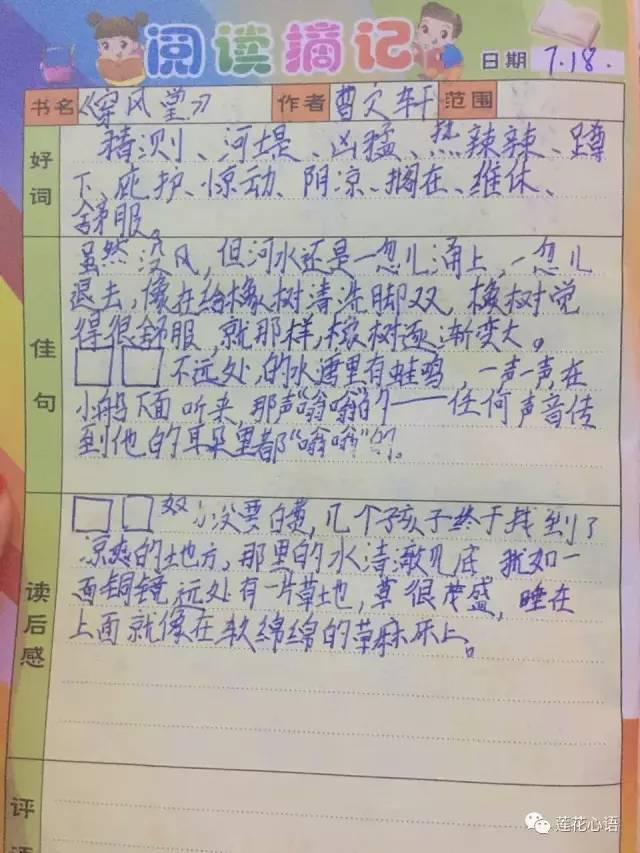 阅读摘记
日期 7.18.
书名 《穿风堂》 作者 曹文轩 范围
好词
猜测、河堤、凶猛、热辣辣、蹲
下、庇护、惊动、阴凉、搁在、维休、
舒服。
佳句
虽然没风,但河水还是一忽儿涌上,一忽儿
退去,像在给橡树清洗脚双,橡树觉
得很舒服,就那样,橡树逐渐变大。
不远处,的水塘里有蛙鸣,一声一声,在
小船下面听来,那声“嗡嗡”的——任何声音传
到他的耳朵里都“嗡嗡”的。
读后感
没要白费,几个孩子终于找到了
凉爽的地方,那里的水清澈见底 犹如一
面铜镜远处有一片草地,草很茂盛,睡在
上面就像在软绵绵的草麻床上。
评语
莲花心语